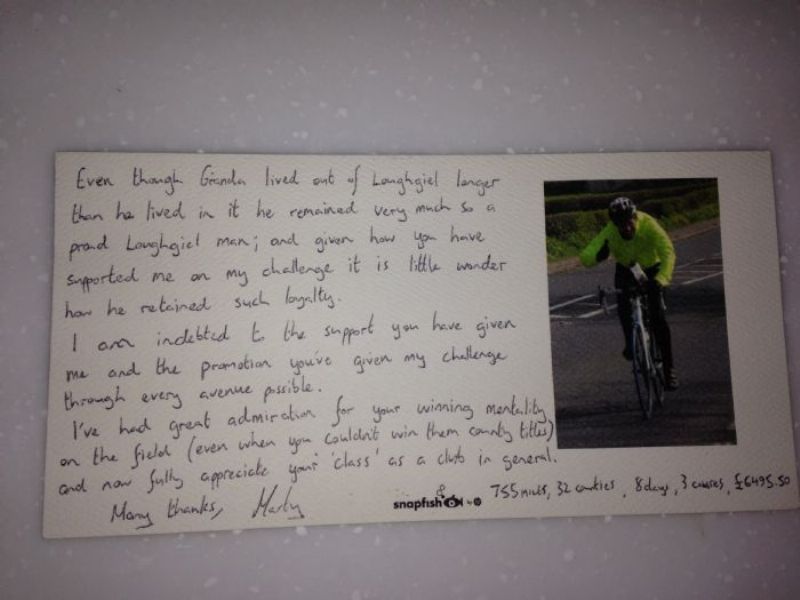 Even though Granda lived out of Loughgiel longer
than he lived in it he remained very much so a
proud Loughgiel man; and given how you have
supported me on my challenge it is little wonder
how he retained such loyalty.
I am indebted to the support you have given
me and the promotion you've given my challenge
through every avenue possible.
I've had great admiration for your winning mentality
on the field (even when you couldn't win them county titles)
and now fully appreciate your 'class' as a club in general.
Many thanks, Marty
snapfish by hp
755 miles, 32 counties, 8 days, 3 causes, £6495.50